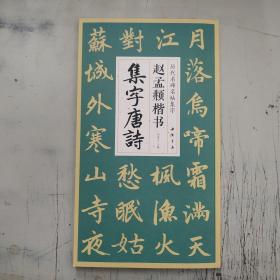 月落烏啼霜滿天
江楓漁火
對愁眠姑
蘇城外寒山寺夜
历代名碑名帖集字
赵孟頫楷书
集字唐詩